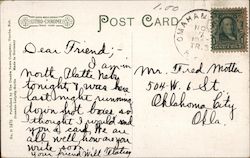 1.00
POST CARD
OMAHA
Dear Friend;-
I am in
north Platte Neby
tonight, I was here
last night running
down hot boxes so
thought I would send
you a card. We are
all well, how are you
write soon
your friend Will
Mr. Fred Motter
504-W. 6 St.
Oklahoma City
Okla.